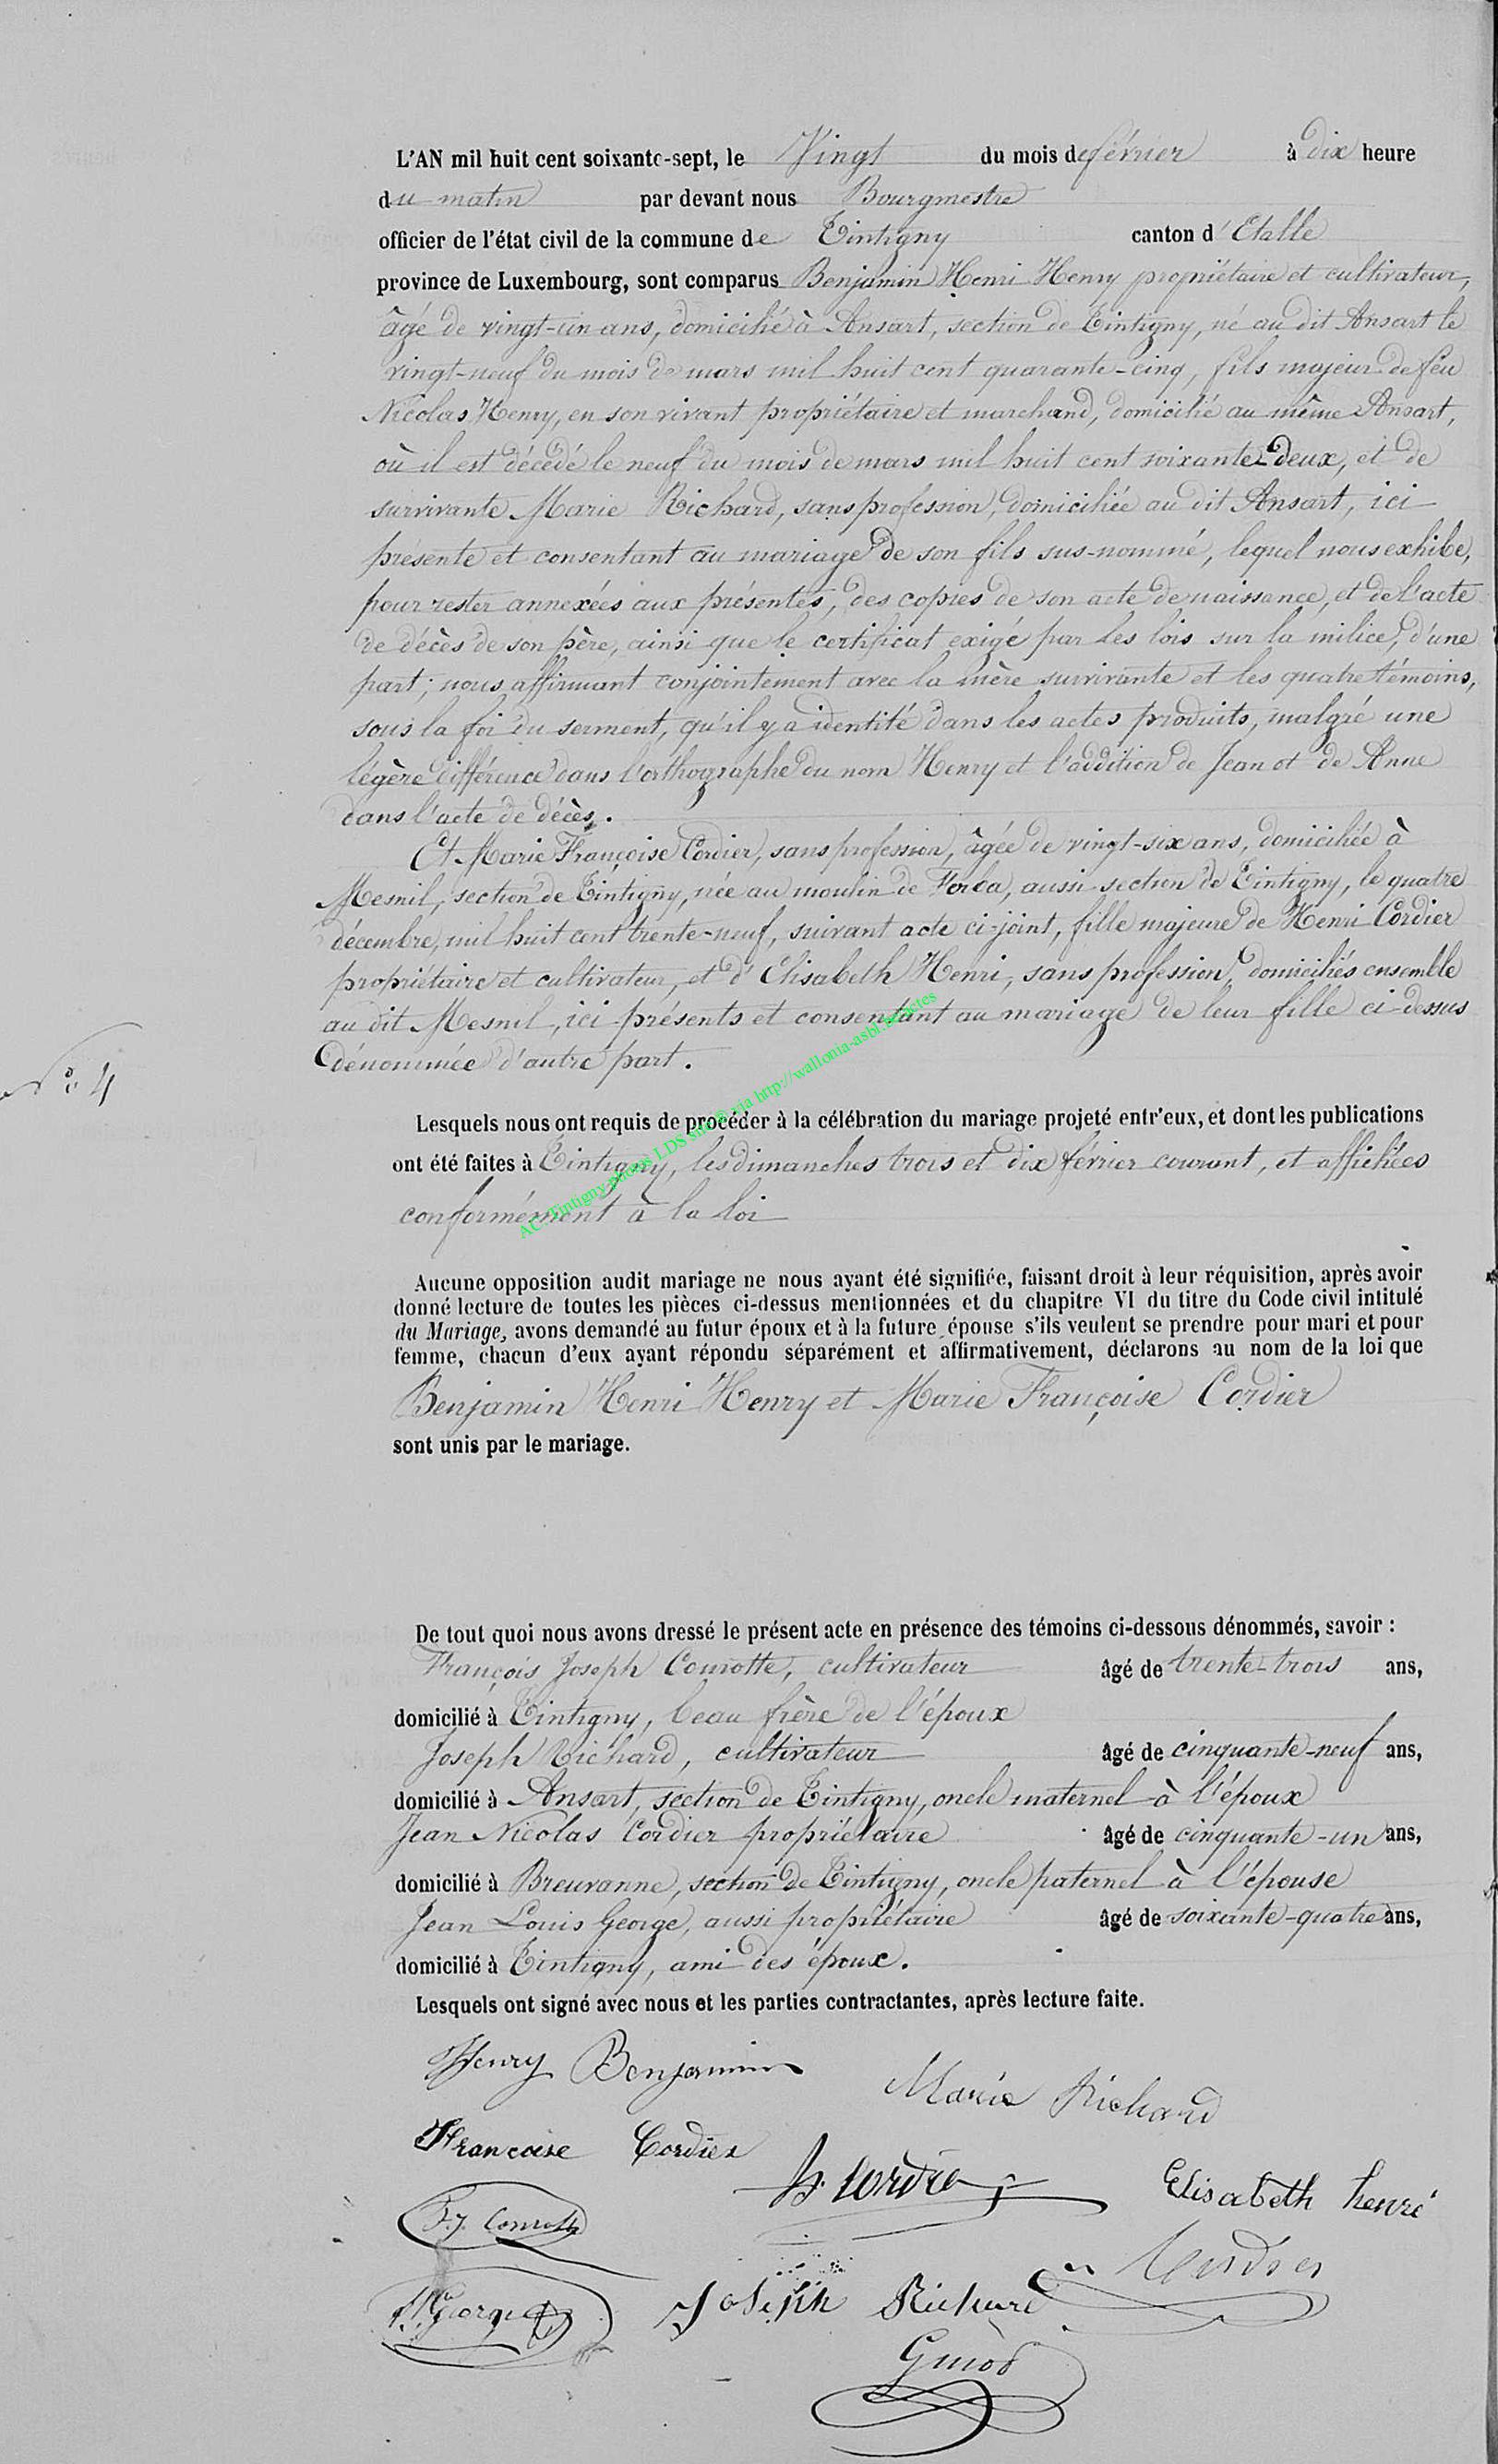 L'AN mil huit cent soixante-sept, le Vingt du mois de février à dix heure
du matin par devant nous Bourgmestre
officier de l'état civil de la commune de Tintigny canton d'Etalle
province de Luxembourg, sont comparus Benjamin Henri Henry propriétaire et cultivateur,
âgé de vingt-un ans, domicilié à Ansart, section de Tintigny, né au dit Ansart le
vingt-neuf du mois de mars mil huit cent quarante-cinq, fils majeur de feu
Nicolas Henry, en son vivant propriétaire et marchand, domicilié au même Ansart,
où il est décédé le neuf du mois de mars mil huit cent soixante-deux, et de
survivante Marie Richard, sans profession, domiciliée au dit Ansart, ici
présente et consentant au mariage de son fils sus-nommé, lequel nous exhibe,
pour rester annexées aux présentes, des copies de son acte de naissance, et de l'acte
de décès de son père, ainsi que le certificat exigé par les lois sur la milice, d'une
part; nous affirmant conjointement avec la mère survivante et les quatre témoins,
sous la foi du serment, qu'il y a identité dans les actes produits, malgré une
légère différence dans l'orthographe du nom Henry et l'addition de Jean et de Anne
dans l'acte de décès.
Et Marie Françoise Cordier, sans profession, âgée de vingt-six ans, domiciliée à
Mesnil, section de Tintigny, née au moulin de aussi section de Tintigny, le quatre
décembre, mil huit cent trente-neuf, suivant acte ci-joint, fille majeure de Henri Cordier
propriétaire et cultivateur, et d'Elisabeth Henri, sans profession, domiciliés ensemble
au dit Mesnil, ici présents et consentant au mariage de leur fille ci-dessus
dénommée d'autre part.
N° 4
Lesquels nous ont requis de procéder à la célébration du mariage projeté entr'eux, et dont les publications
ont été faites à Tintigny, les dimanches trois et dix février courant, et affichées
conformément à la loi
Aucune opposition audit mariage ne nous ayant été signifiée, faisant droit à leur réquisition, après avoir
donné lecture de toutes les pièces ci-dessus mentionnées et du chapitre VI du titre du Code civil intitulé
du Mariage, avons demandé au futur époux et à la future épouse s'ils veulent se prendre pour mari et pour
femme, chacun d'eux ayant répondu séparément et affirmativement, déclarons au nom de la loi que
Benjamin Henri Henry et Marie Françoise Cordier
sont unis par le mariage.
De tout quoi nous avons dressé le présent acte en présence des témoins ci-dessous dénommés, savoir :
François Joseph Conrotte, cultivateur âgé de trente-trois ans,
domicilié à Tintigny, beau frère de l'époux
Joseph Richard, cultivateur âgé de cinquante-neuf ans,
domicilié à Ansart, section de Tintigny, oncle maternel à l'époux
Jean Nicolas Cordier propriétaire âgé de cinquante-un ans,
domicilié à Breuvanne, section de Tintigny, oncle paternel à l'épouse
Jean Louis George, aussi propriétaire âgé de soixante-quatre ans,
domicilié à Tintigny, ami des époux.
Lesquels ont signé avec nous et les parties contractantes, après lecture faite.
Henry Benjamin
Marie Richard
Francoise Cordier
h. Cordier
Elisabeth henri
F.J. Conrotte
Cordier
George
Joseph Richard